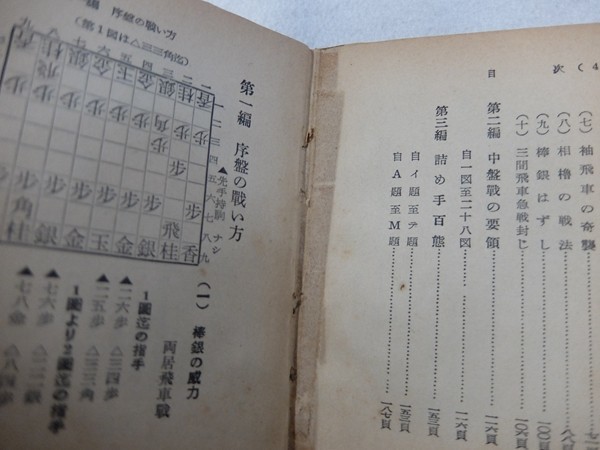 (4
次
目
(七) 袖飛車の奇襲
(八) 相櫓の戦法
(九) 棒銀はずし
(十) 三間飛車急戦封じ
一〇六頁
第二編 中盤戦の要領
一一六頁
自一図至二十八図
一一六頁
第三編 詰め手百態
一五三頁
自イ題至テ題
一五三頁
自A題至M題
一八七頁
序盤の戦い方
(第1図は△三三角迄)
第一編 序盤の戦い方
▲先手持駒 ナシ
一 二 三 四 五 六 七 八 九
香 桂 銀 金 玉 金 銀 桂
飛
角
歩 歩 歩 歩 歩 歩 歩
歩
歩 歩
角 飛
桂 銀 金 玉 金 銀 桂 香
(一) 棒銀の威力
両居飛車戦
1圖迄の指手
▲二六歩 △三四歩
▲二五歩 △三三角
1圖より2圖迄の指手
▲七六歩 △二二銀